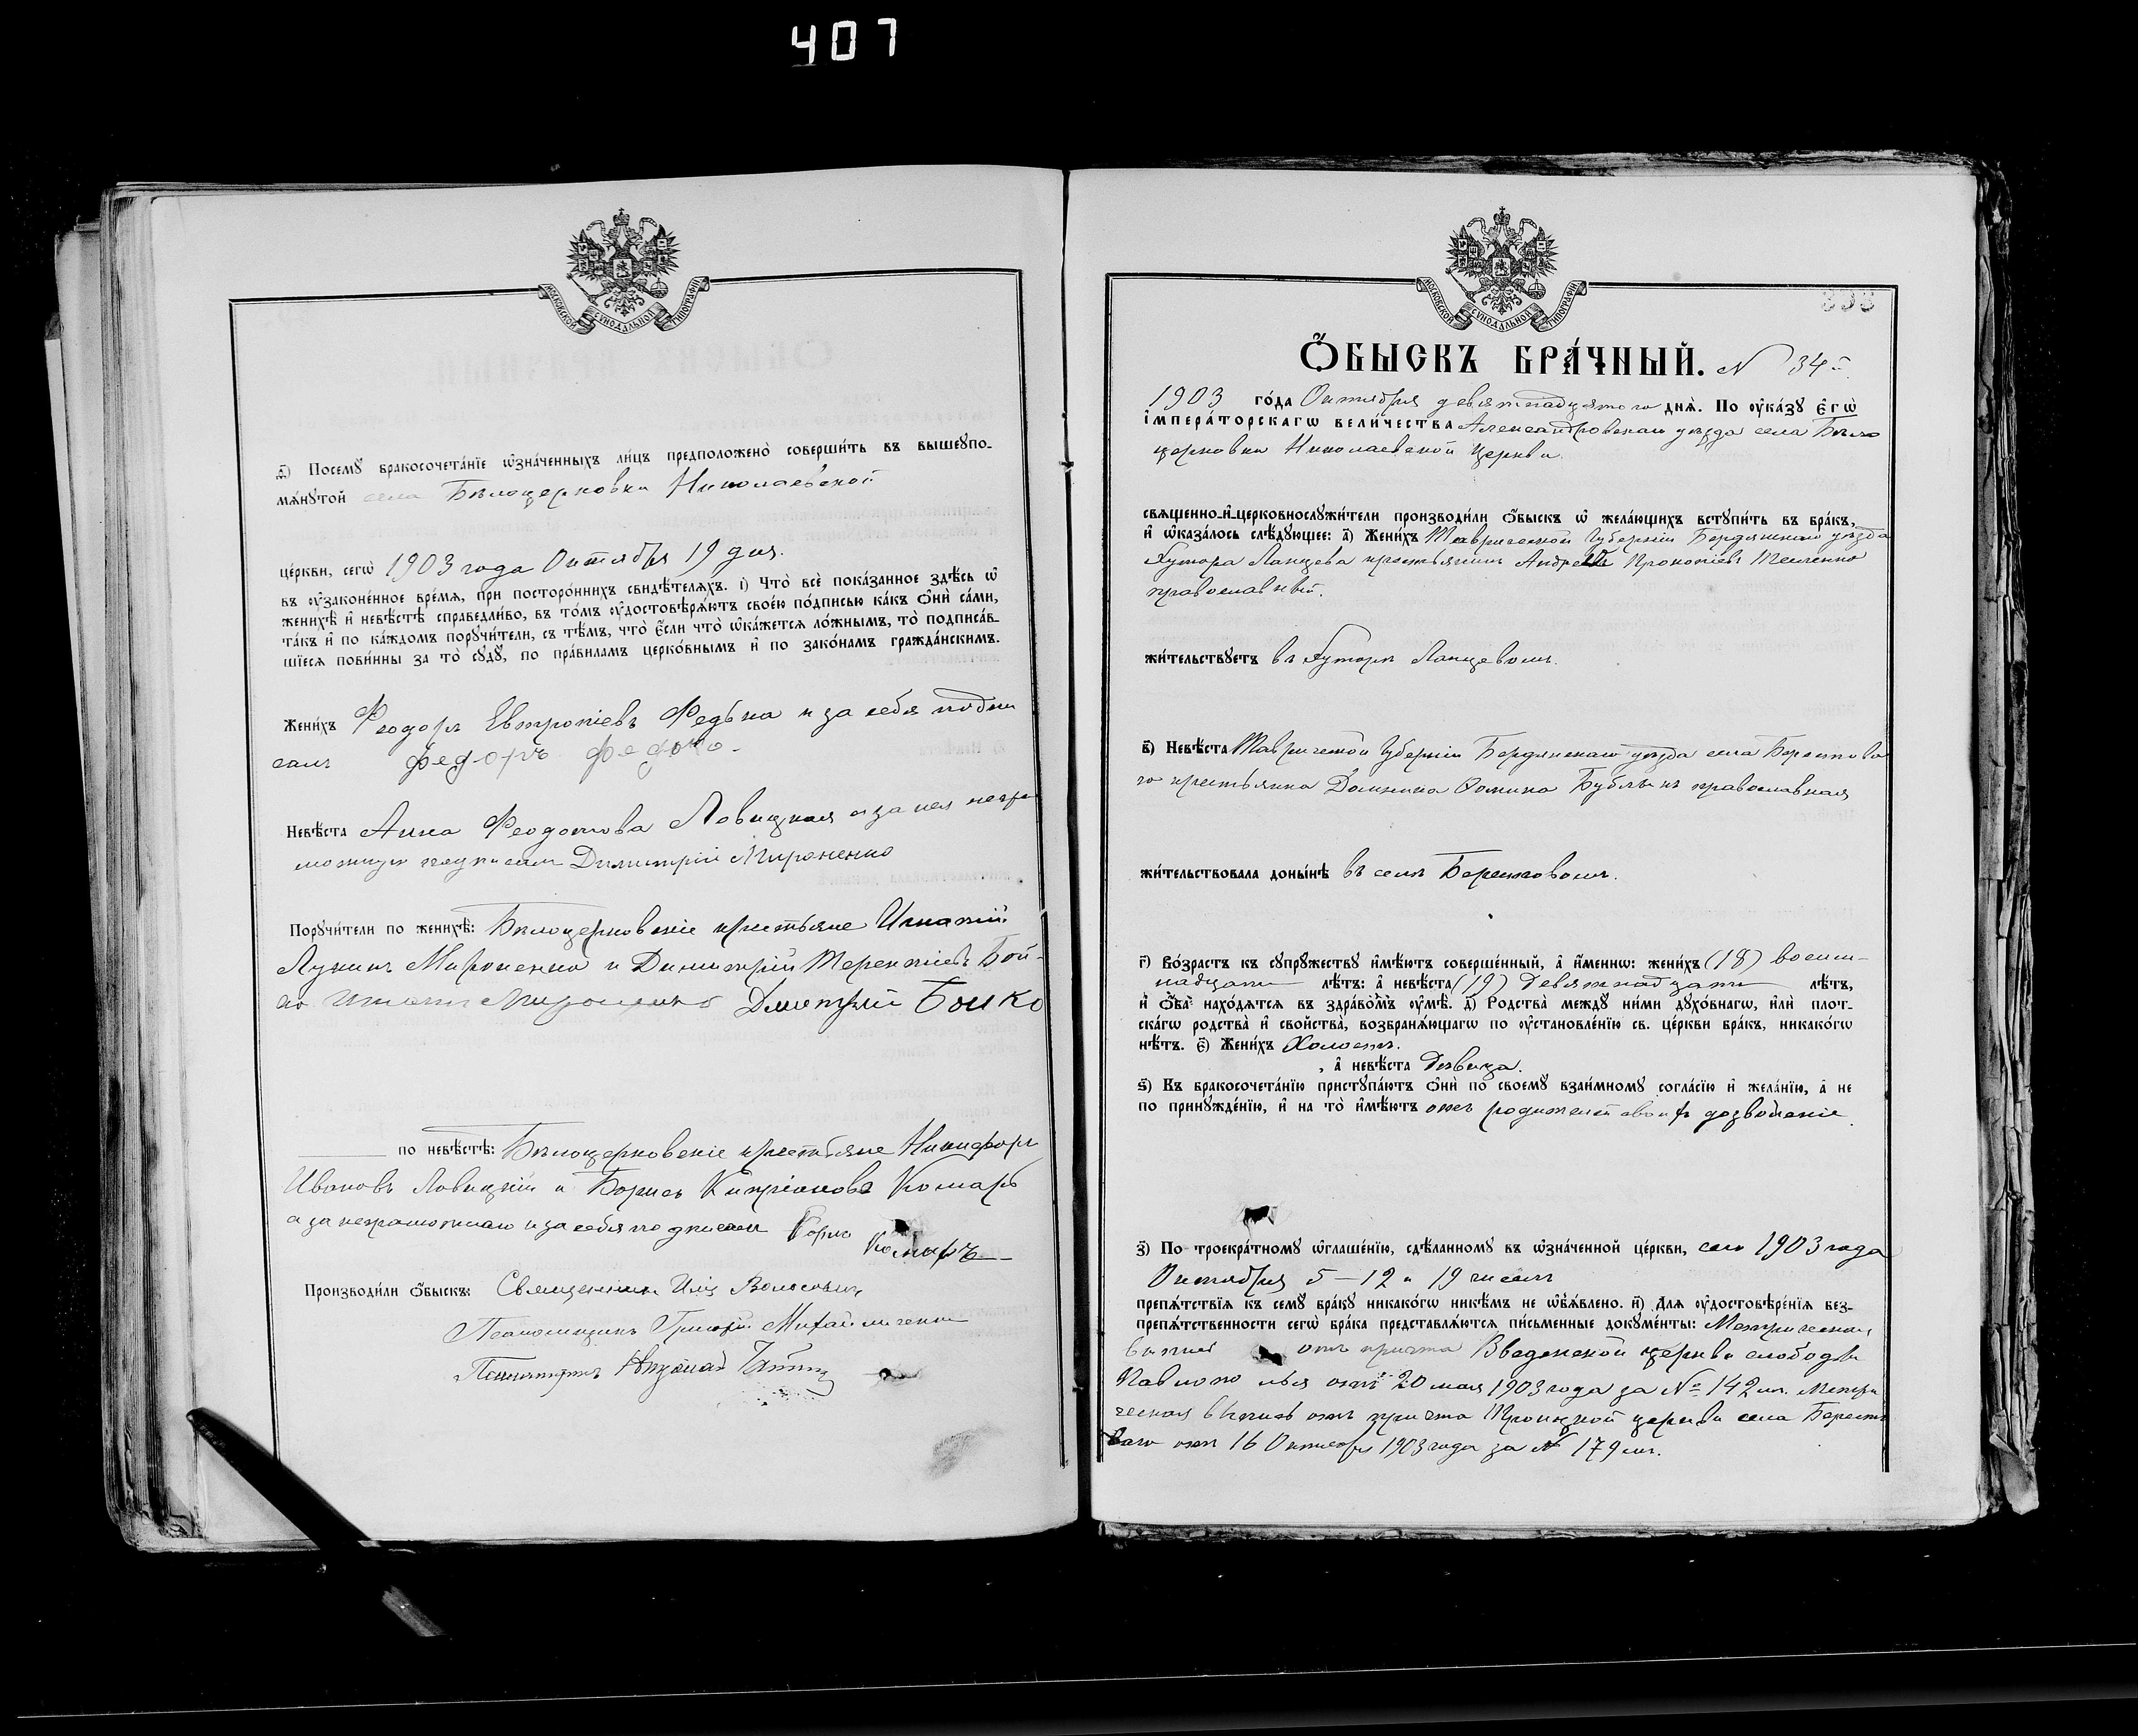 407
МОСКОВСКОЙ СѴНОДАЛЬНОЙ ТИПОГРАФІИ
ѳ҃) Посемꙋ̀ бракосочета́нїе ѡ҆зна́ченныхъ ли́цъ предположено̀ соверши́ть въ вышеꙋпо-
мѧ́нꙋтой села Бѣлоцерковки Николаевской
це́ркви, сегѡ̀ 1903 года Октября 19 дня.
въ ᲂу҆зако́не́нное вре́мѧ, при посторо́ннихъ свидѣ́телѧхъ. і҃) Что̀ всѐ пока́занное здѣ́сь ѡ҆
женихѣ̀ и҆ невѣ́стѣ справедли́во, въ то́мъ ᲂу҆достовѣрѧ́ютъ свое́ю по́дписью ка́къ ѻ҆нѝ са́ми,
та́къ и҆ по ка́ждомъ порꙋчи́тели, съ тѣ́мъ, что̀ є҆́сли что̀ ѡ҆ка́жетсѧ ло́жнымъ, то̀ подписа́в-
шїесѧ пови́нны за то̀ сꙋдꙋ̀, по пра́виламъ церко́внымъ и҆ по зако́намъ гражда́нскимъ.
Жени́хъ Феодоръ Евтропіевъ Федька и за себя подпи
салъ Федоръ Федько
Невѣ́ста Анна Феодотова Ловицкая а за нея негра
мотную подписалъ Димитрій Мироненко
Порꙋчи́тели по женихѣ̀: Бѣлоцерковскіе крестьяне Игнатій
Лукинъ Мироненко и Димитрій Терентіевъ Бой-
ко Игнатъ Мироненко Дмитрій Бойко
по невѣ́стѣ: Бѣлоцерковскіе крестьяне Никифоръ
Ивановъ Ловицкій и Борисъ Кипріановъ Комарь
а за неграмотнаго и за себя подписалъ
Комаръ
Производи́ли ѻ҆́быскъ: Священникъ Илія
Псаломщикъ Григорій Михайличенко
МОСКОВСКОЙ СѴНОДАЛЬНОЙ ТИПОГРАФІИ
Ѻ҆́БЫСКЪ БРА́ЧНЫЙ. N 34й
1903 го́да Октября девятнадцатого днѧ̀. По ᲂу҆ка́зꙋ Є҆гѡ̀
І҆мпера́торскагѡ вели́чества Александровскаго уѣзда села Бѣло
церковки Николаевской церкви.
свѧщенно-и҆-церковнослꙋжи́тели производи́ли ѻ҆́быскъ ѡ҆ жела́ющихъ встꙋпи́ть въ бра́къ,
и҆ ѡ҆каза́лось слѣ́дꙋющее: а҃) Жени́хъ Таврической Губерніи Бердянскаго уѣзда
Хутора Ланцева крестьянинъ Андрей Прокопіевъ Теиленко
православный.
жи́тельствꙋетъ въ Хуторѣ Ланцевомъ.
в҃) Невѣ́ста Таврической Губерніи Бердянскаго уѣзда села Берестово
го крестьянка Домника Ѳомина православная
жи́тельствовала доны́нѣ въ селѣ Берестовомъ.
г҃) Во́зрастъ къ сꙋпрꙋ́жествꙋ и҆мѣ́ютъ соверше́нный, а҆ и҆́меннѡ: жени́хъ (18) восем-
надцати лѣ́тъ: а҆ невѣ́ста (19) Девятнадцати лѣ́тъ,
и҆ ѻ҆́ба нахо́дѧтсѧ въ здра́вомъ ᲂу҆мѣ̀. д҃) Родства̀ междꙋ ни́ми дꙋхо́внагѡ, и҆лѝ плот-
ска́гѡ родства̀ и҆ свойства̀, возбранѧ́ющагѡ по ᲂу҆становле́нїю св. це́ркви бра́къ, никако́гѡ
нѣ́тъ. є҃) Жени́хъ Холостъ.
, а҆ невѣ́ста Дѣвица.
ѕ҃) Къ бракосочета́нїю пристꙋпа́ютъ ѻ҆нѝ по своемꙋ̀ взаи́мномꙋ согла́сїю и҆ жела́нїю, а҆ не
по принꙋжде́нїю, и҆ на то̀ и҆мѣ́ютъ отъ родителей своихъ дозволеніе.
з҃) По троекра́тномꙋ ѡ҆глаше́нїю, сдѣ́ланномꙋ въ ѡ҆зна́ченной це́ркви, сего 1903 года
Октября 5 – 12 и 19 чиселъ
препѧ́тствїѧ къ семꙋ̀ бра́кꙋ никако́гѡ никѣ́мъ не ѡ҆б̾ѧ́влено. и҃) Длѧ ᲂу҆достовѣре́нїѧ без-
препѧ́тственности сегѡ̀ бра́ка представлѧ́ютсѧ пи́сьменные докꙋме́нты: Метрическая
выпись отъ причта Введенской церкви слободы
отъ 20 мая 1903 года за № 142 мъ. Метри
ческая выпись отъ причта Троицкой церкви села Бересто
ваго отъ 16 Октября 1903 года за № 179 мъ.